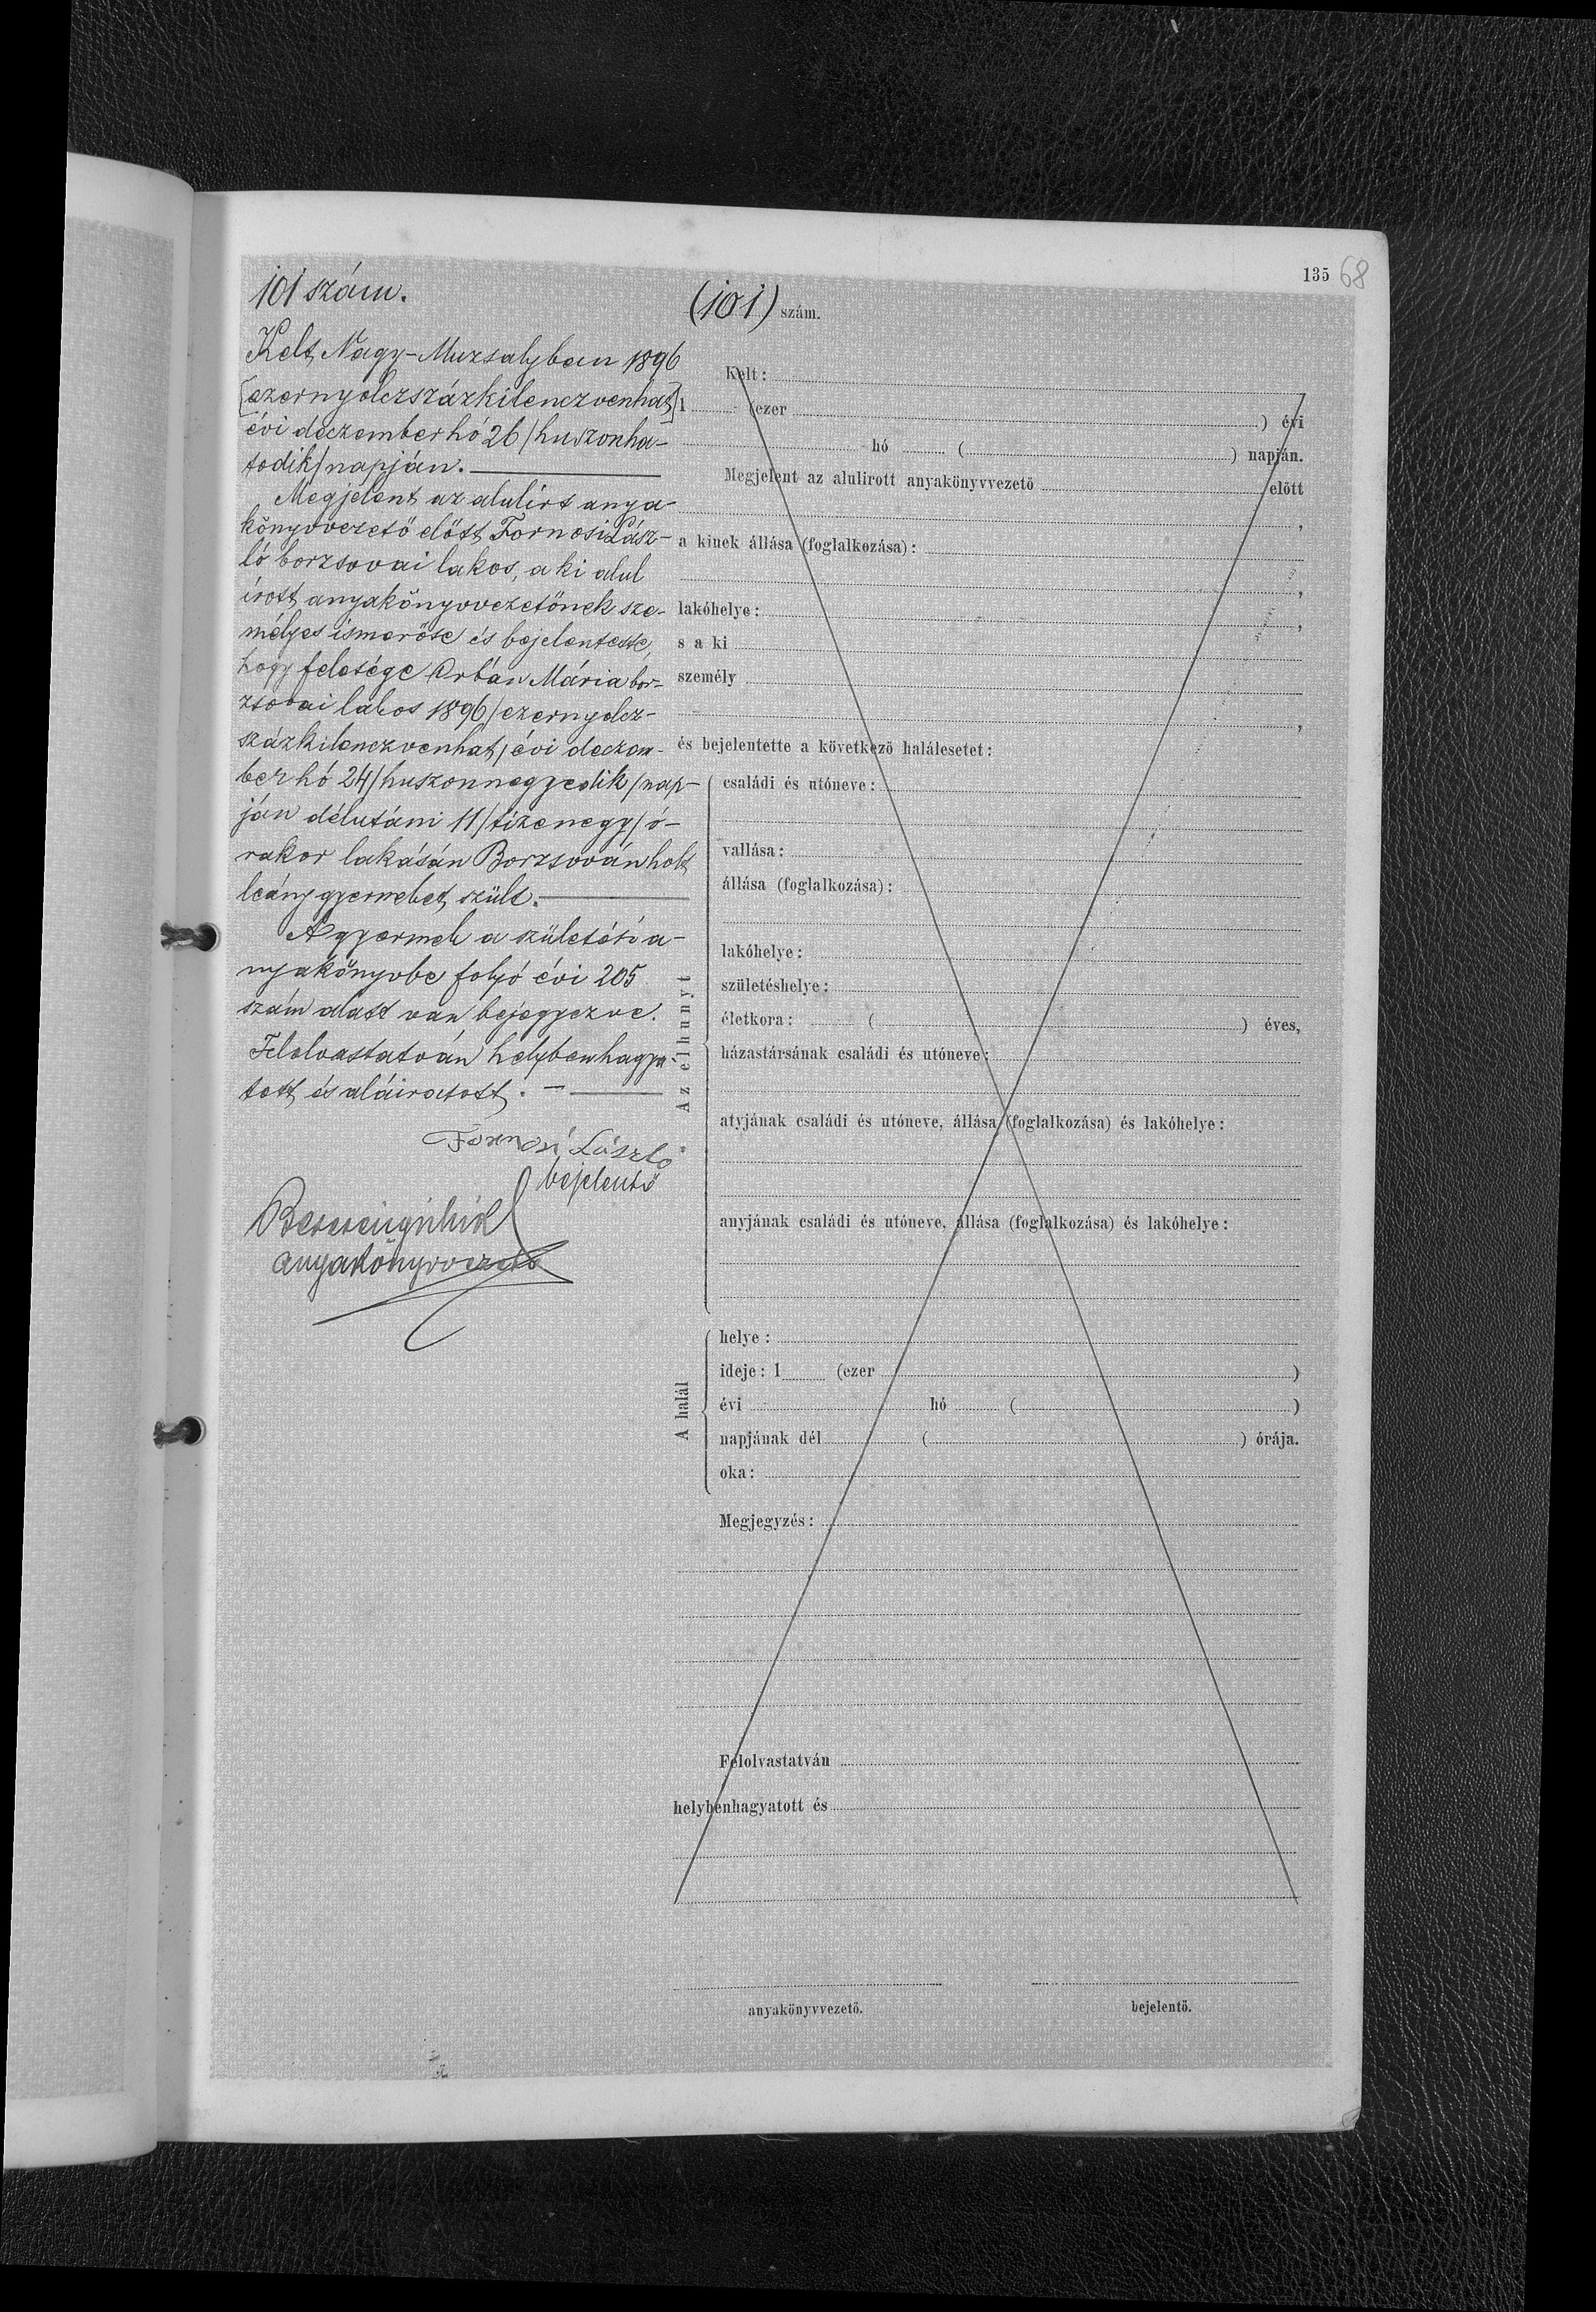 135 68
101 szám.
Kelt Nagy-Muzsalyban 1896
[ezernyolczszázkilenczvenhat]
évi deczember hó 26/huszonha-
todik/napján.
Megjelent az alulírt anya-
könyvvezető előtt Fornosi Lász-
ló borzsovai lakos, a ki alul
írott anyakönyvvezetőnek sze-
mélyes ismerőse és bejelentette,
hogy felesége Orbán Mária bor-
zsovai lakos 1896/ezernyolcz-
százkilenczvenhat/évi deczem-
ber hó 24/huszonnegyedik/nap-
ján délutáni 11/tizenegy/ó-
rakor lakásán Borzsován holt
leány gyermeket szült.
A gyermek a születési a-
nyakönyvbe folyó évi 205
szám alatt van bejegyezve.
Felolvastatván helybenhagya-
tott és aláiratott.
Fornosi László
bejelentő
anyakönyvvezető
(101) szám.
Kelt:
1 (ezer ) évi
hó ( ) napján.
Megjelent az alulirott anyakönyvvezető előtt
,
a kinek állása (foglalkozása):
,
lakóhelye: ,
s a ki
személy
,
és bejelentette a következő halálesetet:
Az elhunyt
családi és utóneve:
vallása:
állása (foglalkozása):
lakóhelye:
születéshelye:
életkora: ( ) éves,
házastársának családi és utóneve:
atyjának családi és utóneve, állása (foglalkozása) és lakóhelye:
anyjának családi és utóneve, állása (foglalkozása) és lakóhelye:
A halál
helye:
ideje: 1 (ezer )
évi hó ( )
napjának dél ( ) órája.
oka:
Megjegyzés:
Felolvastatván
helybenhagyatott és
anyakönyvvezető. bejelentő.